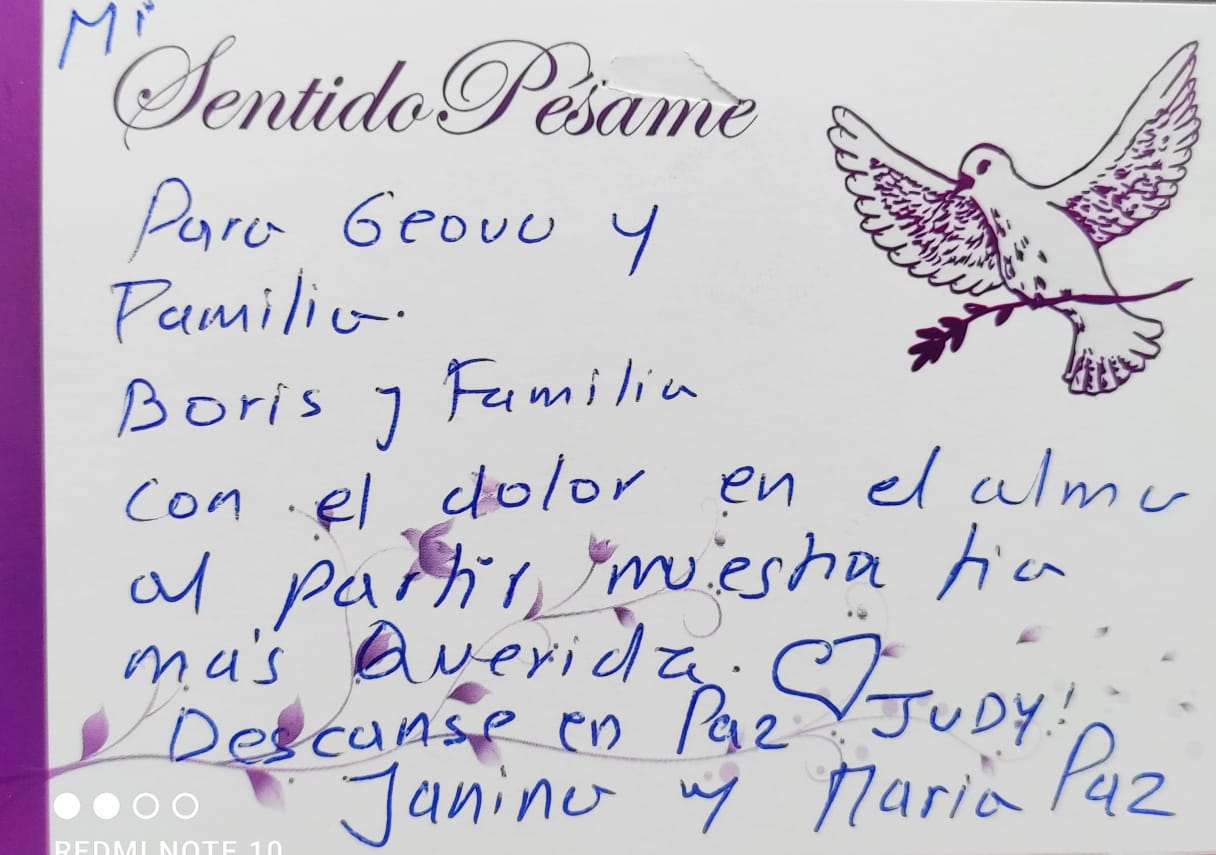 Mi
Sentido Pésame
Para Geova y
Familia.
Boris y Familia
con el dolor en el alma
al partir nuestra tia
más Querida.
Descanse en Paz JUDY!
Janina y Maria Paz
REDMI NOTE 10